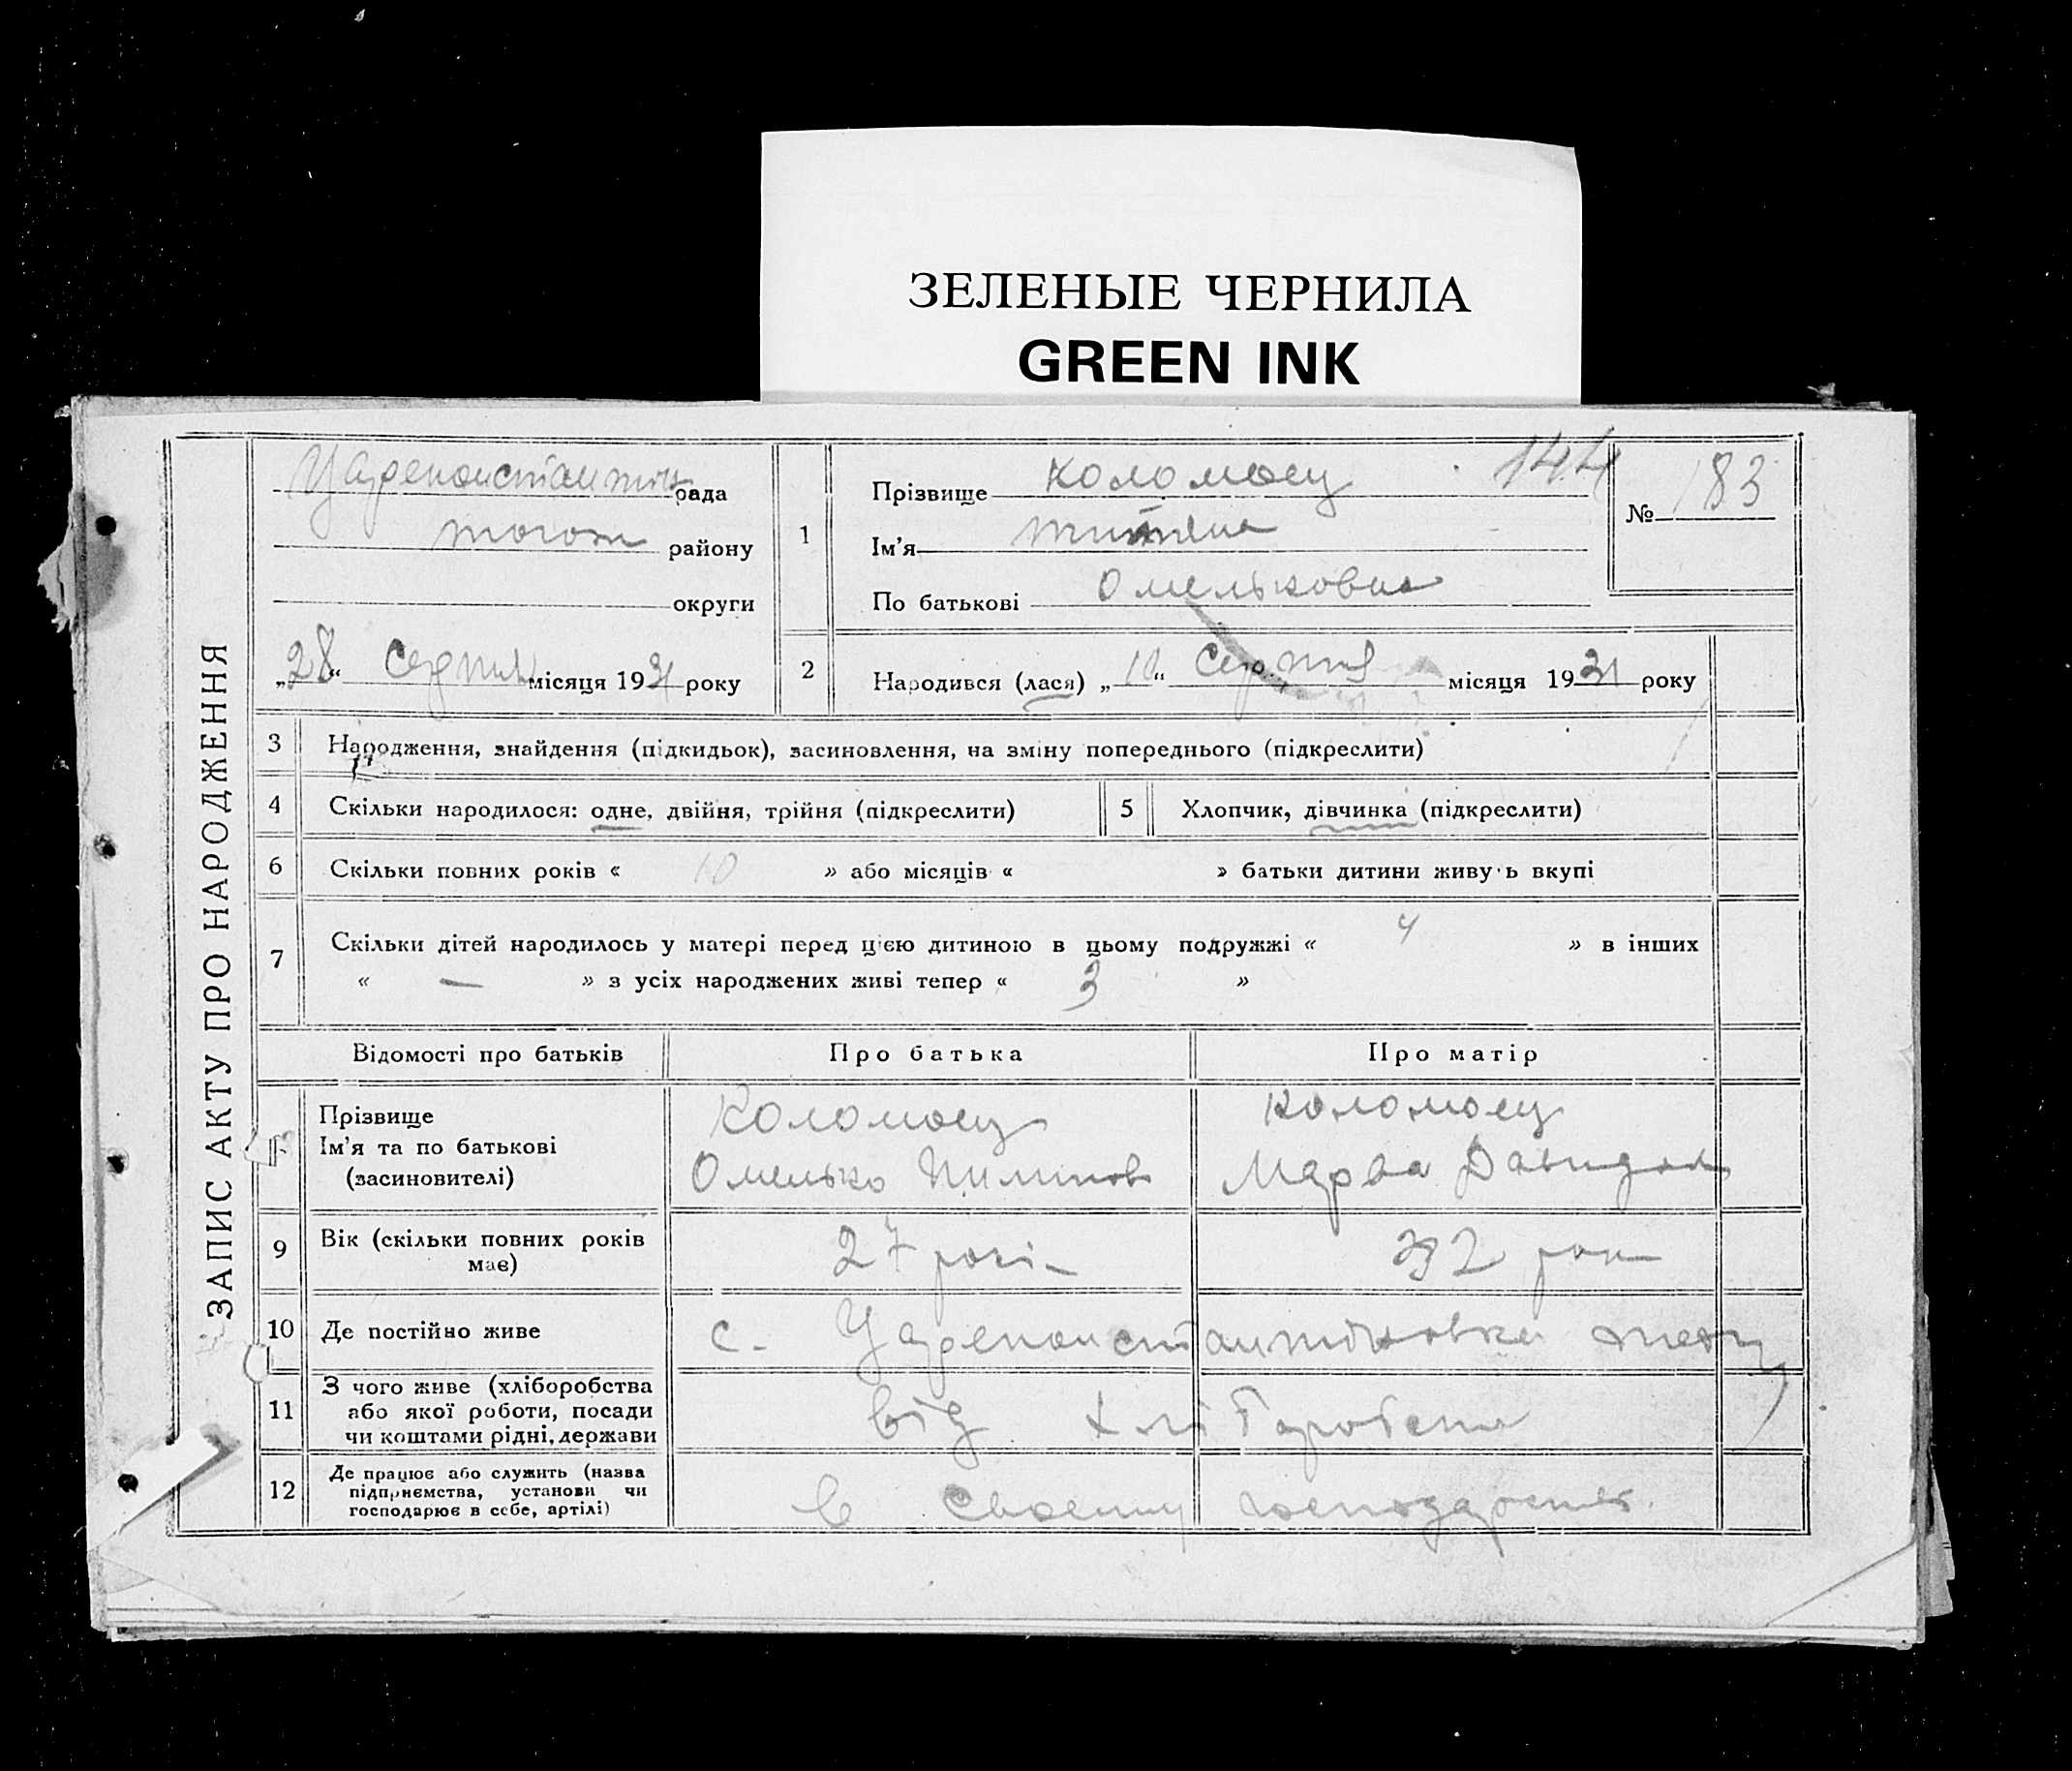 ЗЕЛЕНЫЕ ЧЕРНИЛА
GREEN INK
ЗАПИС АКТУ ПРО НАРОДЖЕННЯ
Цареконстантин рада
тогож району
округи
„28“ Серпня місяця 1931 року
1 Прізвище Коломоец 144
Ім'я
По батькові Омельковна
№ 183
2 Народився (лася) „10“ Серпня місяця 1931 року
3 Народження, знайдення (підкидьок), засиновлення, на зміну попереднього (підкреслити)
4 Скільки народилося: одне, двійня, трійня (підкреслити) 5 Хлопчик, дівчинка (підкреслити)
6 Скільки повних років « 10 » або місяців « » батьки дитини живу·ь вкупі
7 Скільки дітей народилось у матері перед цією дитиною в цьому подружжі « 4 » в інших
« — » з усіх народжених живі тепер « 3 »
Відомості про батьків Про батька Про матір
Прізвище Коломоец Коломоец
Ім'я та по батькові Омелько Пилипов Марва Давидов
(засиновителі)
9 Вік (скільки повних років має) 27 рокі 32 рок
10 Де постійно живе с. Цареконстантиновка
11 З чого живе (хліборобства або якої роботи, посади чи коштами рідні, держави від хліборобства
12 Де працює або служить (назва підприємства, установи чи господарює в себе, артілі) в своему господарстві.